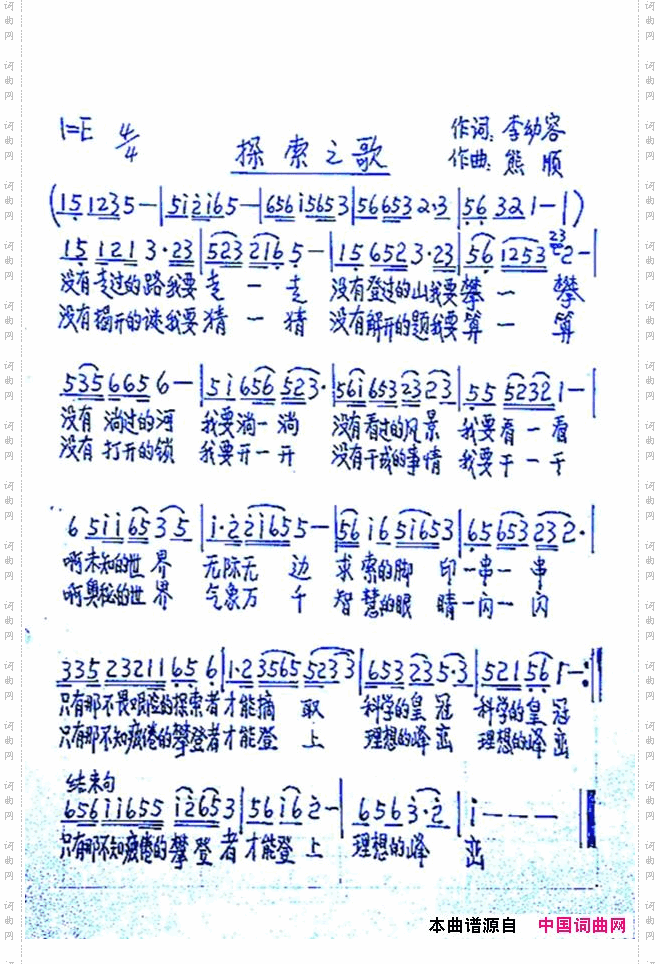 1=E 4/4
探索之歌
作词: 李幼容
作曲: 熊顺
(15 1235-|512165-|6561565 3|56653 2·3|56 321-|)
15 121 3·23|523 2165-|15 6523·23|56 1253 232-|
没有走过的路我要走一走 没有登过的山我要攀一攀
没有揭开的谜我要猜一猜 没有解开的题我要算一算
535 665 6-|51656 523·|561653 23 23|55 5232 1-|
没有淌过的河 我要淌一淌 没有看过的风景 我要看一看
没有打开的锁 我要开一开 没有干成的事情 我要干一干
6 511 65 35|1·2 2165 5-|56 16 5165 3|65 653 23 2·|
啊未知的世界 无际无边 求索的脚印一串一串
啊奥秘的世界 气象万千 智慧的眼睛一闪一闪
335 23211 65 6·|1·2 3565 5233|653 235·3|521 56 1-:|
只有那不畏艰险的探索者才能摘取 科学的皇冠 科学的皇冠
只有那不知疲倦的攀登者才能登上 理想的峰峦 理想的峰峦
结束句
656 11655 12653|56 16 2-|656 3·2|1---‖
只有那不知疲倦的攀登者才能登上 理想的峰峦
本曲谱源自 中国词曲网
词曲网